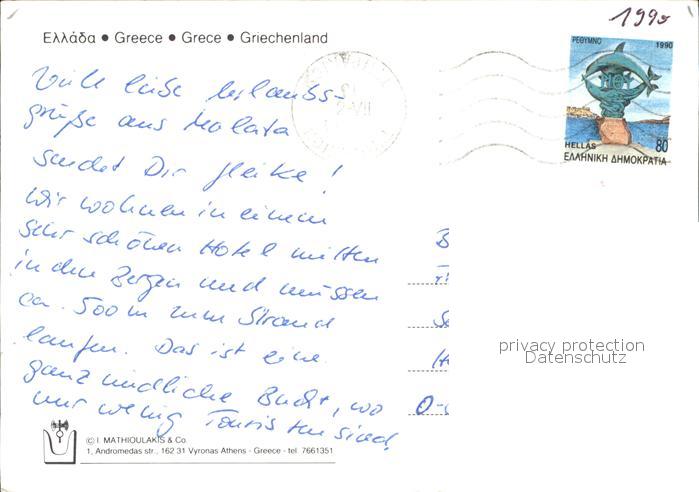 1990
Ελλάδα ● Greece ● Grece ● Griechenland
ΡΕΘΥΜΝΟ 1990
80
HELLAS
ΕΛΛΗΝΙΚΗ ΔΗΜΟΚΡΑΤΙΑ
Viele liebe Urlaubs-
grüße aus Malata
sendet Dir Heike!
Wir wohnen in einem
sehr schönen Hotel mitten
in den Bergen und müssen
ca. 500m zum Strand
laufen. Das ist eine
ganz niedliche Bucht, wo
nur wenig Touristen sind.
B
Se
H
O-
privacy protection
Datenschutz
© I. MATHIOULAKIS & Co.
1, Andromedas str., 162 31 Vyronas Athens - Greece - tel 7661351